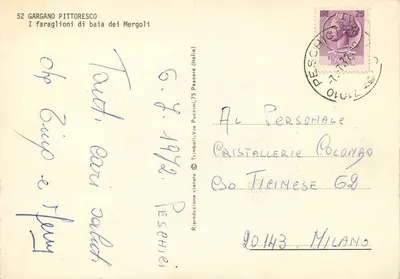 52 GARGANO PITTORESCO
I faraglioni di baia dei Mergoli
25
PESCHICI
71010
6.7.1972. PESCHICI
Tanti cari saluti
Riproduzione vietata © Trimboli-Via Puccini,75 Pescara (Italia)
AL PERSONALE
CRISTALLERIE COLOMBO
CSO TICINESE 62
20143 MILANO